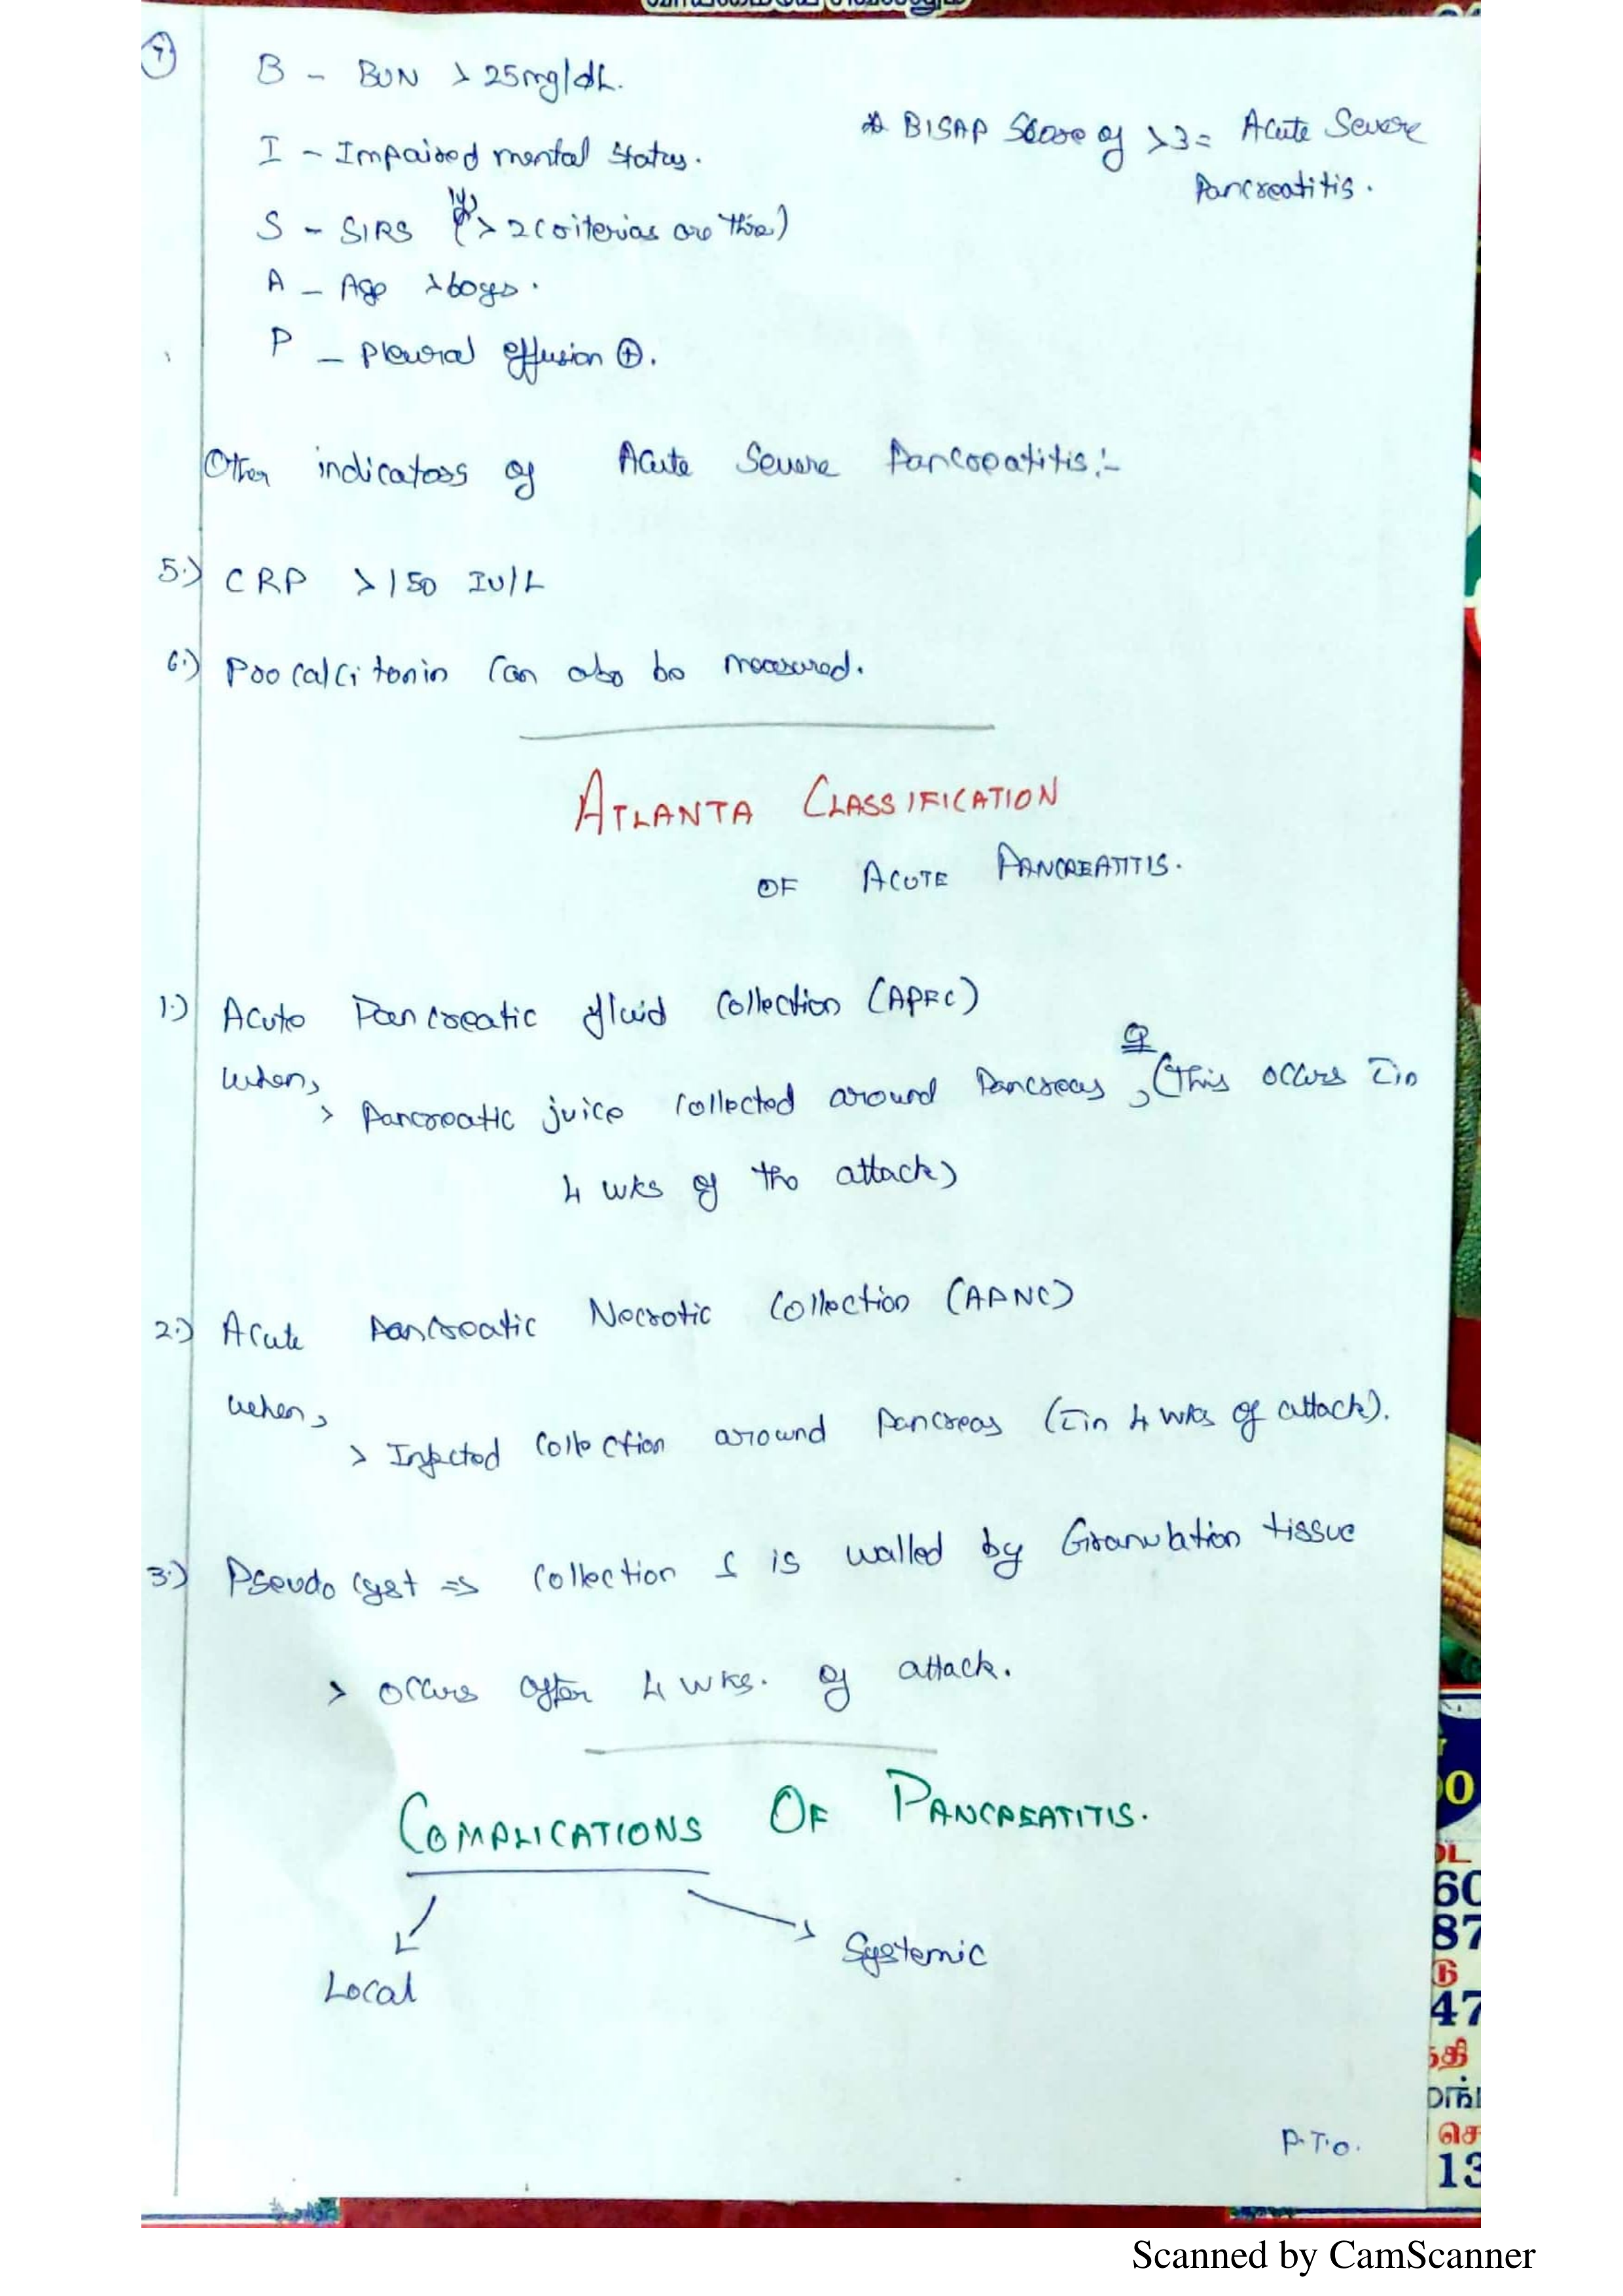 7
B - BUN > 25mg/dL.
* BISAP Score of >3 = Acute Severe
Pancreatitis.
I - Impaired mental status.
S - SIRS (if > 2 criterias are there)
A - Age > 60yrs.
P - pleural effusion ⊕.
Other indicators of Acute Severe Pancreatitis:-
5.) CRP > 150 IU/L
6.) Procalcitonin can also be measured.
ATLANTA CLASSIFICATION
OF ACUTE PANCREATITIS.
1.) Acute Pancreatic fluid Collection (APFC)
when,
> Pancreatic juice collected around Pancreas, (This occurs c̄in
4 wks of the attack)
2.) Acute Pancreatic Necrotic Collection (APNC)
when,
> Infected Collection around Pancreas (c̄in 4 wks of attack).
3.) Pseudocyst => Collection is walled by Granulation tissue
> occurs after 4 wks. of attack.
COMPLICATIONS OF PANCREATITIS.
Local
Systemic
P.T.O.
00
டை
60
87
டு
47
தி
மங்
செ
13
Scanned by CamScanner